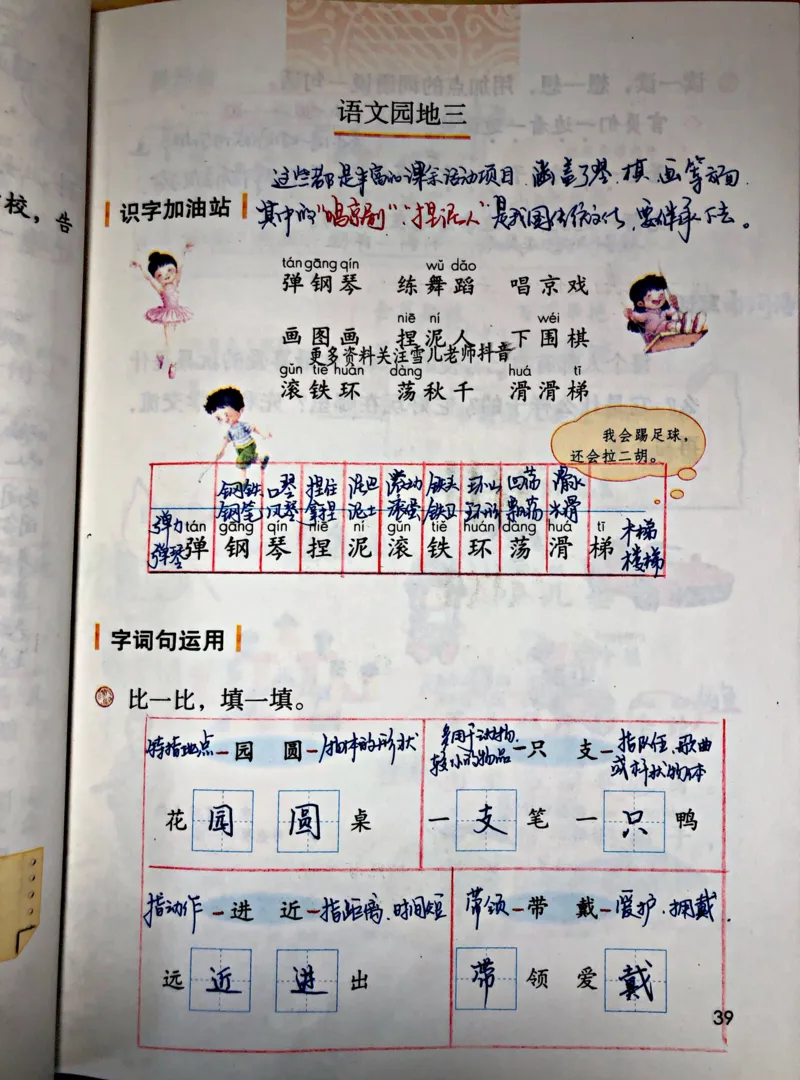 校，告
语文园地三
这些都是丰富的课余活动项目，涵盖了琴、棋、画等方面，
识字加油站
其中的“唱京剧”、“捏泥人”是我国传统文化，要传承下去。
tán gāng qín wǔ dǎo
弹钢琴 练舞蹈 唱京戏
niē ní wéi
画图画 捏泥人 下围棋
更多资料关注雪儿老师抖音
gǔn tiě huán dàng huá tī
滚铁环 荡秋千 滑滑梯
我会踢足球，
还会拉二胡。
钢铁 口琴 捏住 泥巴 滚动 铁头 环山 回荡 滑水
钢笔 风琴 拿捏 泥土 滚蛋 铁卫 环形 飘荡 光滑
弹力 tán gāng qín niē ní gǔn tiě huán dàng huá tī 木梯
弹琴 弹 钢 琴 捏 泥 滚 铁 环 荡 滑 梯 楼梯
字词句运用
比一比，填一填。
特指地点-园 圆-物体的形状
多用于动物、较小的物品-只 支-指队伍、歌曲或杆状物体
花园 圆桌 一支笔 一只鸭
指动作-进 近-指距离、时间短 带领-带 戴-爱护、拥戴.
远近 进出 带领 爱戴
39